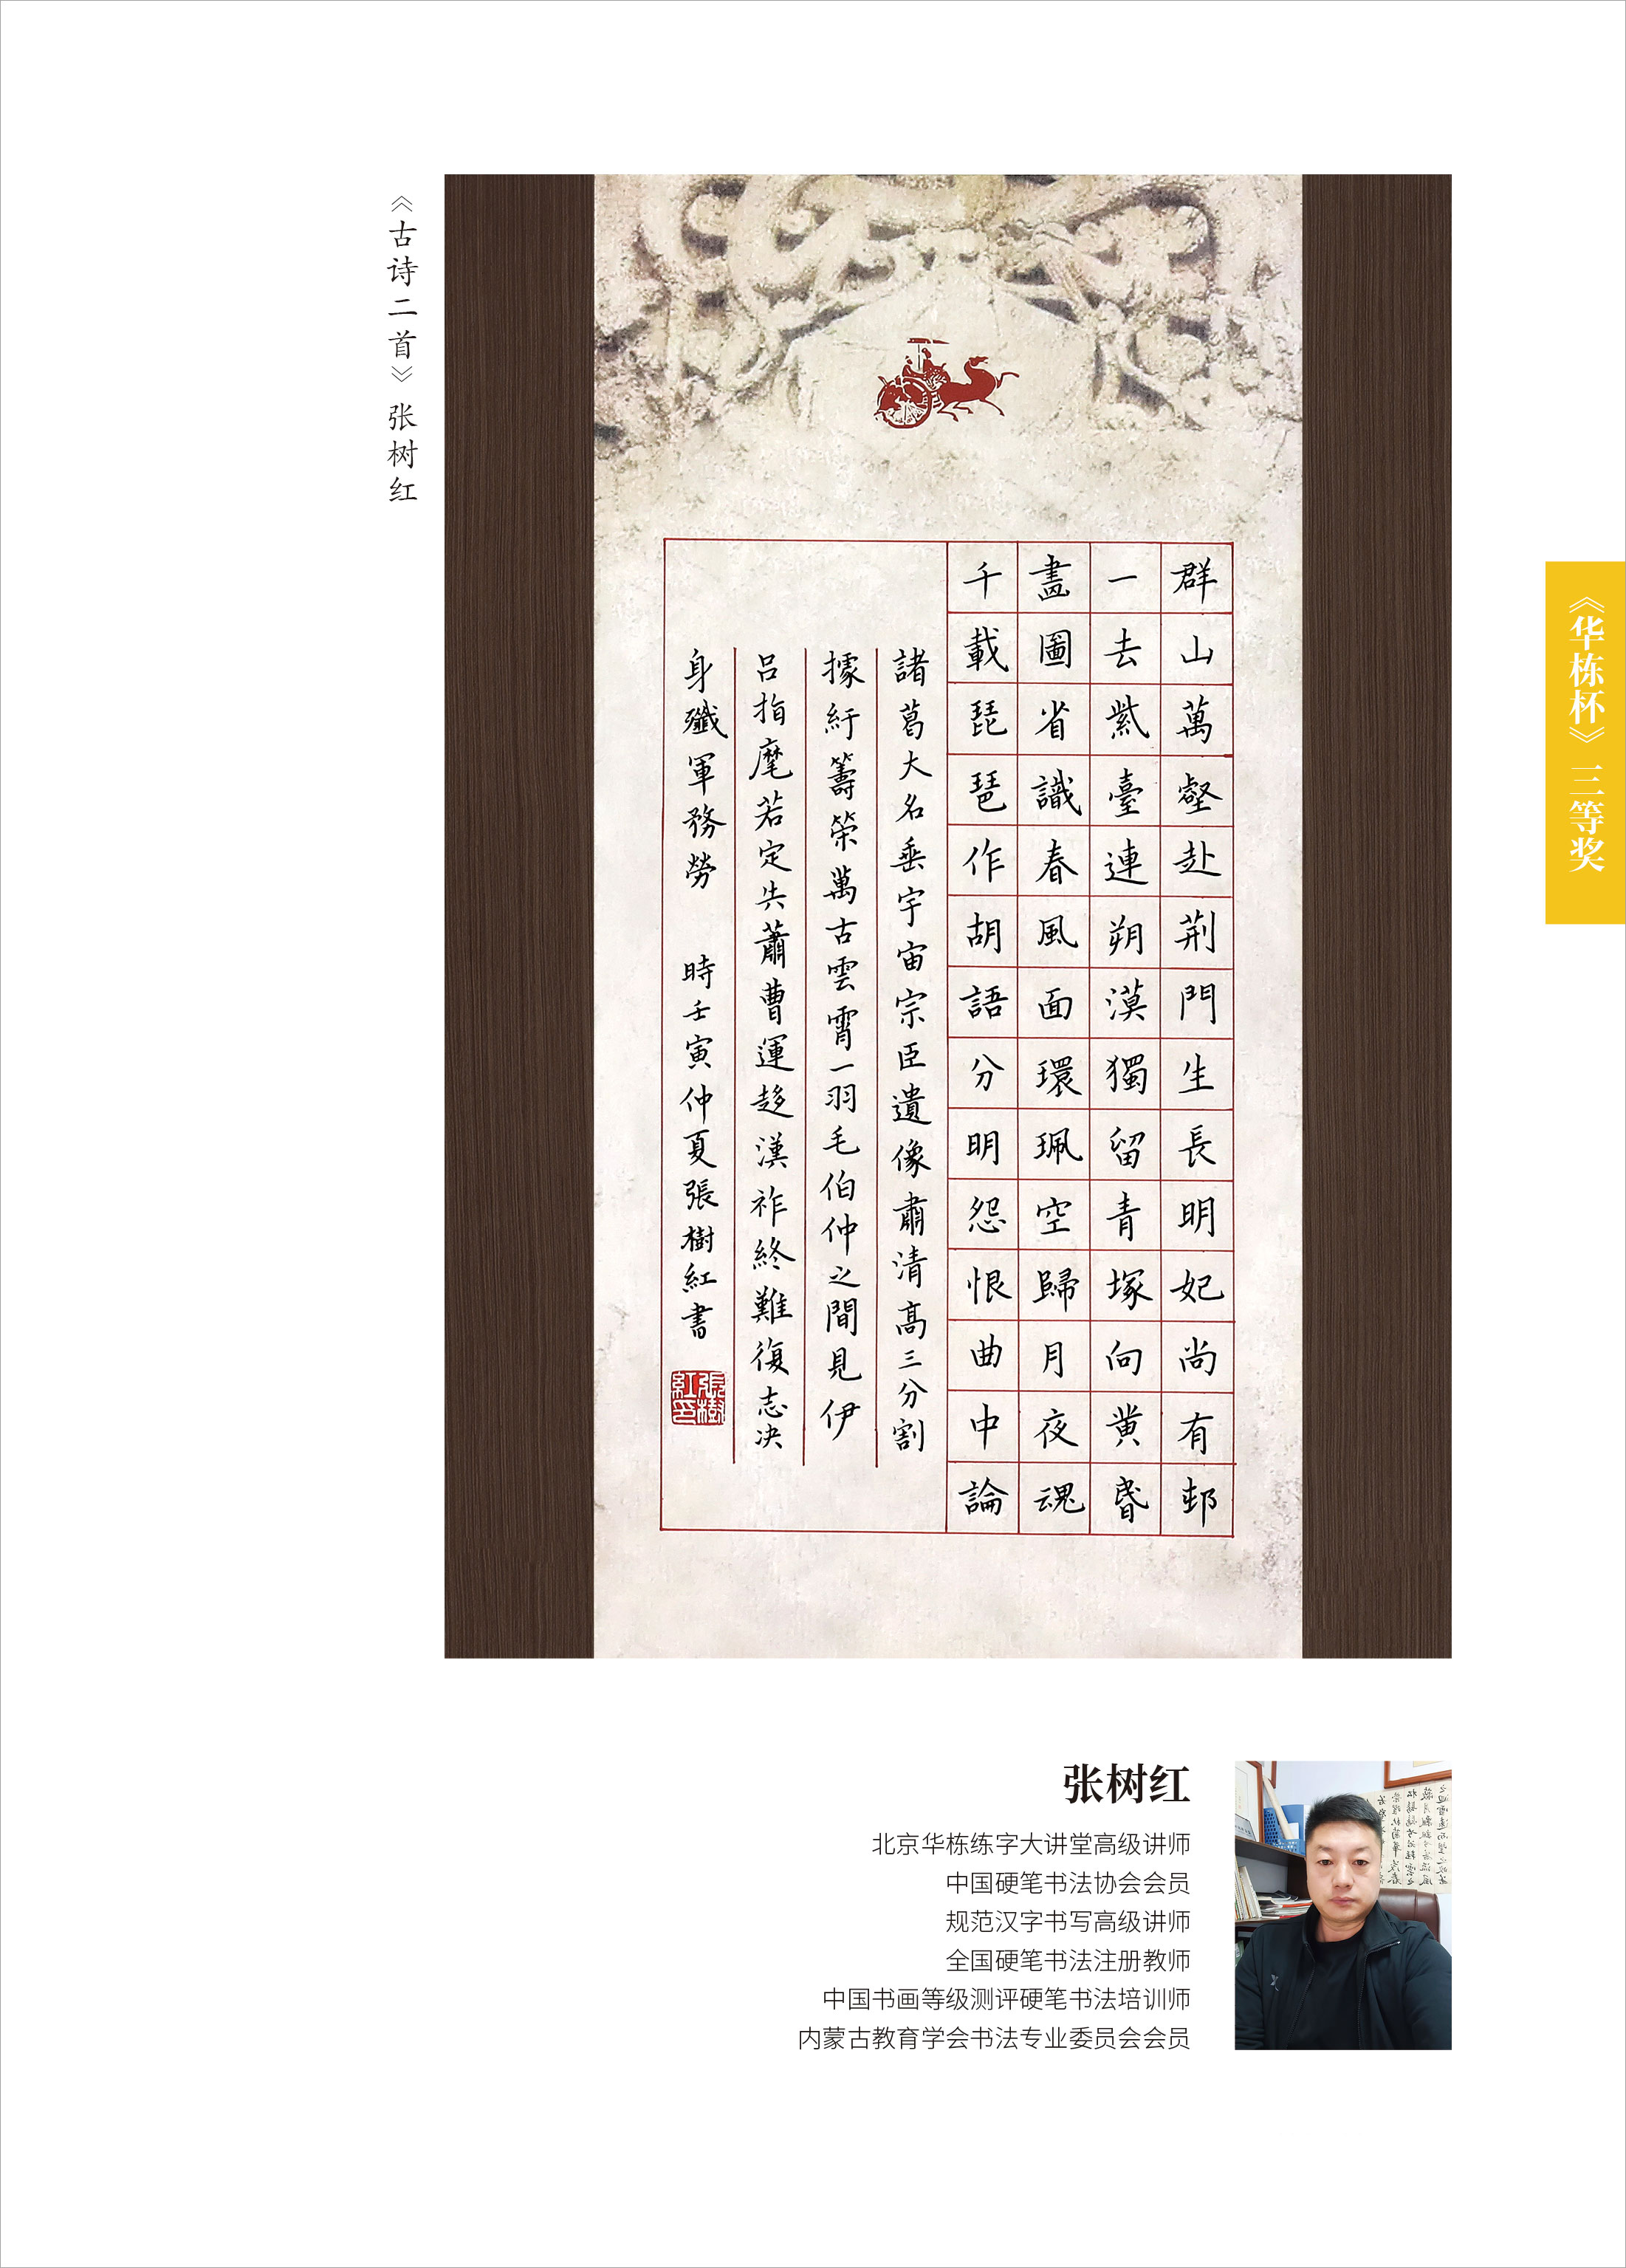 《古诗二首》张树红
《华栋杯》三等奖
群山萬壑赴荆門生長明妃尚有邨
一去紫臺連朔漠獨留青塚向黄昬
畫圖省識春風面環珮空歸月夜魂
千載琵琶作胡語分明怨恨曲中論
諸葛大名垂宇宙宗臣遺像肅清高三分割
據紆籌榮萬古雲霄一羽毛伯仲之間見伊
吕指麾若定失蕭曹運趍漢祚終難復志决
身殲軍務勞 時壬寅仲夏張樹紅書
張樹紅印
张树红
北京华栋练字大讲堂高级讲师
中国硬笔书法协会会员
规范汉字书写高级讲师
全国硬笔书法注册教师
中国书画等级测评硬笔书法培训师
内蒙古教育学会书法专业委员会会员